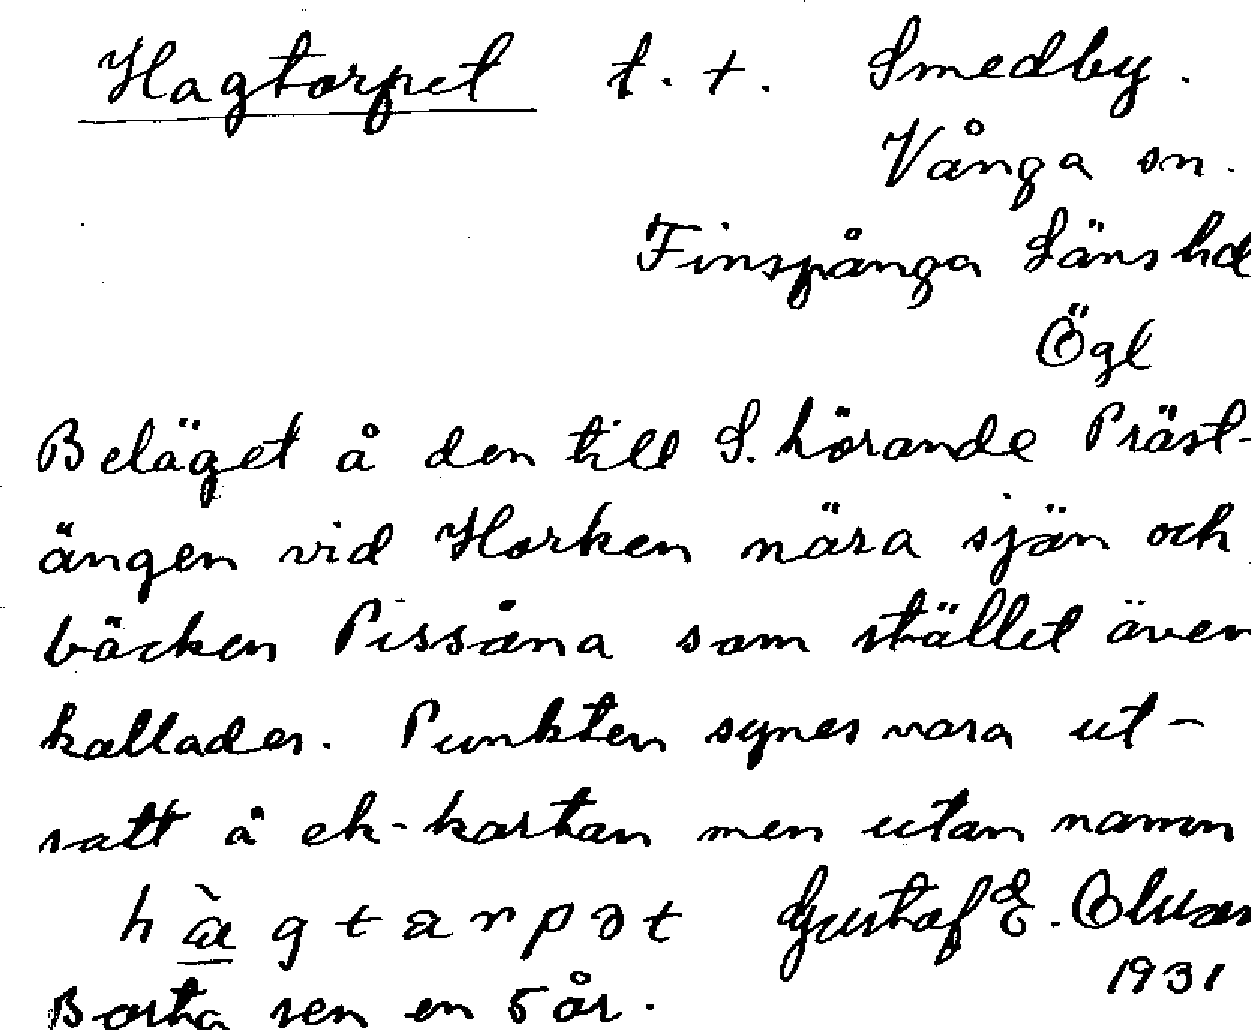 Hagtorpet t. t. Smedby.
Vånga sn.
Finspånga Länshd
Ögl
Beläget å den till S. hörande Präst-
ängen vid Horken nära sjön och
bäcken Pissåna som stället även
kallades. Punkten synes vara ut-
satt å ek-kartan men utan namn
hàgtarpət Gustaf E.
1931
Borta sen en 5 år.